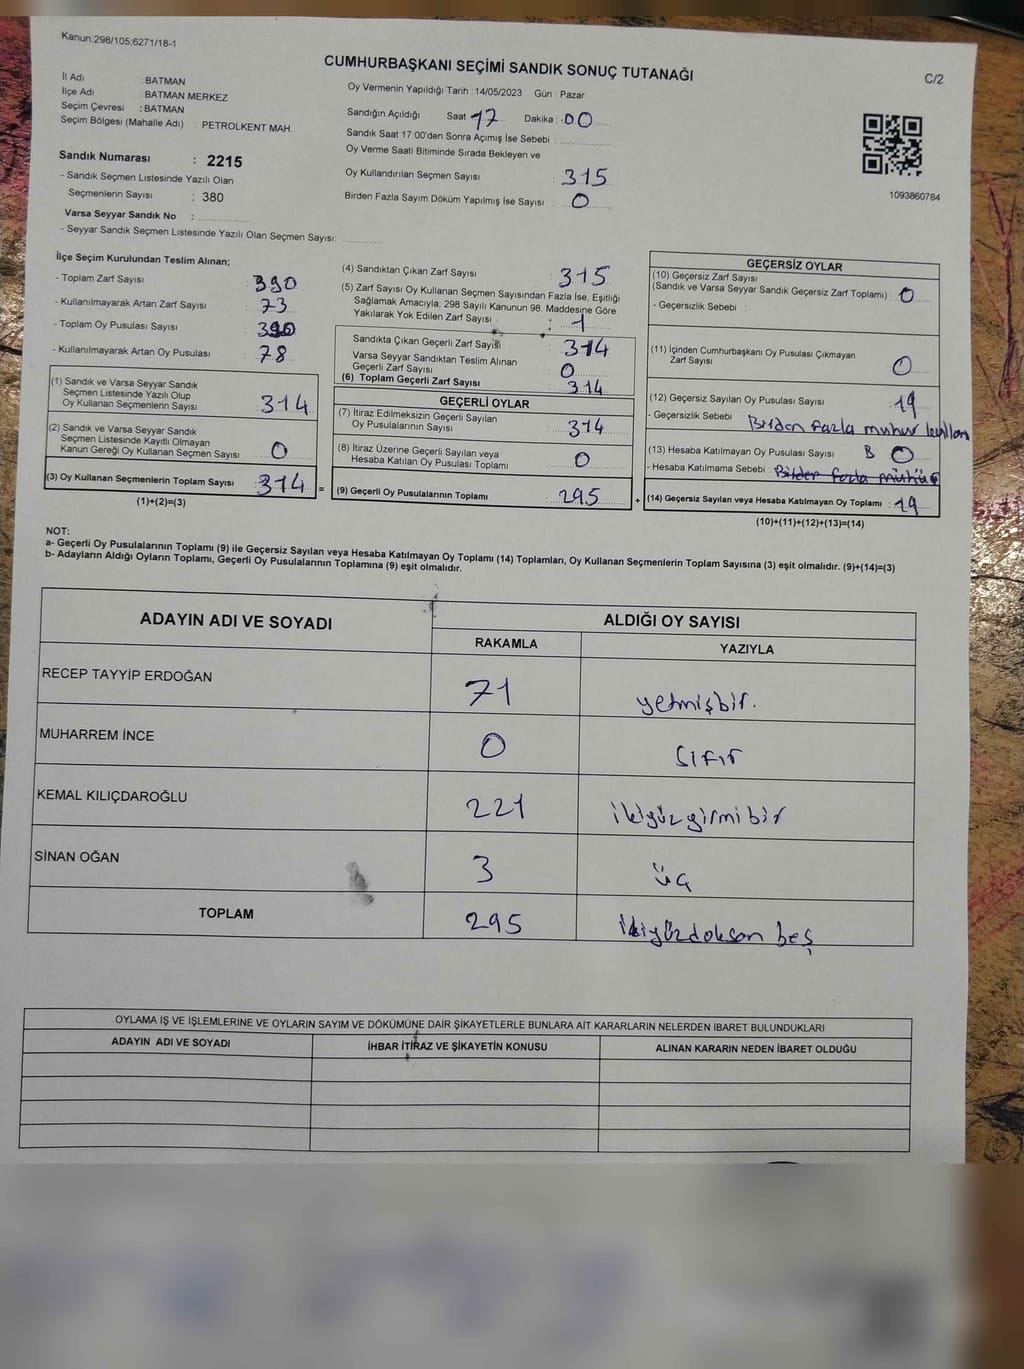 Kanun;298/105;6271/18-1
CUMHURBAŞKANI SEÇİMİ SANDIK SONUÇ TUTANAĞI
C/2
İl Adı : BATMAN
İlçe Adı : BATMAN MERKEZ
Seçim Çevresi : BATMAN
Seçim Bölgesi (Mahalle Adı) : PETROLKENT MAH.
Sandık Numarası : 2215
- Sandık Seçmen Listesinde Yazılı Olan
Seçmenlerin Sayısı : 380
Varsa Seyyar Sandık No :
- Seyyar Sandık Seçmen Listesinde Yazılı Olan Seçmen Sayısı:
Oy Vermenin Yapıldığı Tarih :14/05/2023 Gün : Pazar
Sandığın Açıldığı Saat 17 Dakika : 00
Sandık Saat 17:00'den Sonra Açımış İse Sebebi :
Oy Verme Saati Bitiminde Sırada Bekleyen ve
Oy Kullandırılan Seçmen Sayısı : 315
Birden Fazla Sayım Döküm Yapılmış İse Sayısı : 0
1093860784
İlçe Seçim Kurulundan Teslim Alınan;
- Toplam Zarf Sayısı : 390
- Kullanılmayarak Artan Zarf Sayısı : 73
- Toplam Oy Pusulası Sayısı : 390
- Kullanılmayarak Artan Oy Pusulası : 78
(1) Sandık ve Varsa Seyyar Sandık
Seçmen Listesinde Yazılı Olup
Oy Kullanan Seçmenlerin Sayısı : 314
(2) Sandık ve Varsa Seyyar Sandık
Seçmen Listesinde Kayıtlı Olmayan
Kanun Gereği Oy Kullanan Seçmen Sayısı : 0
(3) Oy Kullanan Seçmenlerin Toplam Sayısı : 314
(1)+(2)=(3)
(4) Sandıktan Çıkan Zarf Sayısı : 315
(5) Zarf Sayısı Oy Kullanan Seçmen Sayısından Fazla İse, Eşitliği
Sağlamak Amacıyla, 298 Sayılı Kanunun 98. Maddesine Göre
Yakılarak Yok Edilen Zarf Sayısı : 1
Sandıkta Çıkan Geçerli Zarf Sayısı : 314
Varsa Seyyar Sandıktan Teslim Alınan
Geçerli Zarf Sayısı : 0
(6) Toplam Geçerli Zarf Sayısı : 314
GEÇERLİ OYLAR
(7) İtiraz Edilmeksizin Geçerli Sayılan
Oy Pusulalarının Sayısı : 314
(8) İtiraz Üzerine Geçerli Sayılan veya
Hesaba Katılan Oy Pusulası Toplamı : 0
= (9) Geçerli Oy Pusulalarının Toplamı : 295 +
GEÇERSİZ OYLAR
(10) Geçersiz Zarf Sayısı
(Sandık ve Varsa Seyyar Sandık Geçersiz Zarf Toplamı) : 0
- Geçersizlik Sebebi :
(11) İçinden Cumhurbaşkanı Oy Pusulası Çıkmayan
Zarf Sayısı : 0
(12) Geçersiz Sayılan Oy Pusulası Sayısı : 19
- Geçersizlik Sebebi : Birden fazla muhur
(13) Hesaba Katılmayan Oy Pusulası Sayısı B 0
- Hesaba Katılmama Sebebi : Birden fazla mühür
(14) Geçersiz Sayılan veya Hesaba Katılmayan Oy Toplamı : 19
(10)+(11)+(12)+(13)=(14)
NOT:
a- Geçerli Oy Pusulalarının Toplamı (9) ile Geçersiz Sayılan veya Hesaba Katılmayan Oy Toplamı (14) Toplamları, Oy Kullanan Seçmenlerin Toplam Sayısına (3) eşit olmalıdır. (9)+(14)=(3)
b- Adayların Aldığı Oyların Toplamı, Geçerli Oy Pusulalarının Toplamına (9) eşit olmalıdır.
ADAYIN ADI VE SOYADI ALDIĞI OY SAYISI
RAKAMLA YAZIYLA
RECEP TAYYİP ERDOĞAN 71 yetmişbir.
MUHARREM İNCE 0 sıfır
KEMAL KILIÇDAROĞLU 221 ikiyüzyirmibir
SİNAN OĞAN 3 üç
TOPLAM 295 ikiyüzdoksan beş
OYLAMA İŞ VE İŞLEMLERİNE VE OYLARIN SAYIM VE DÖKÜMÜNE DAİR ŞİKAYETLERLE BUNLARA AİT KARARLARIN NELERDEN İBARET BULUNDUKLARI
ADAYIN ADI VE SOYADI İHBAR İTİRAZ VE ŞİKAYETİN KONUSU ALINAN KARARIN NEDEN İBARET OLDUĞU